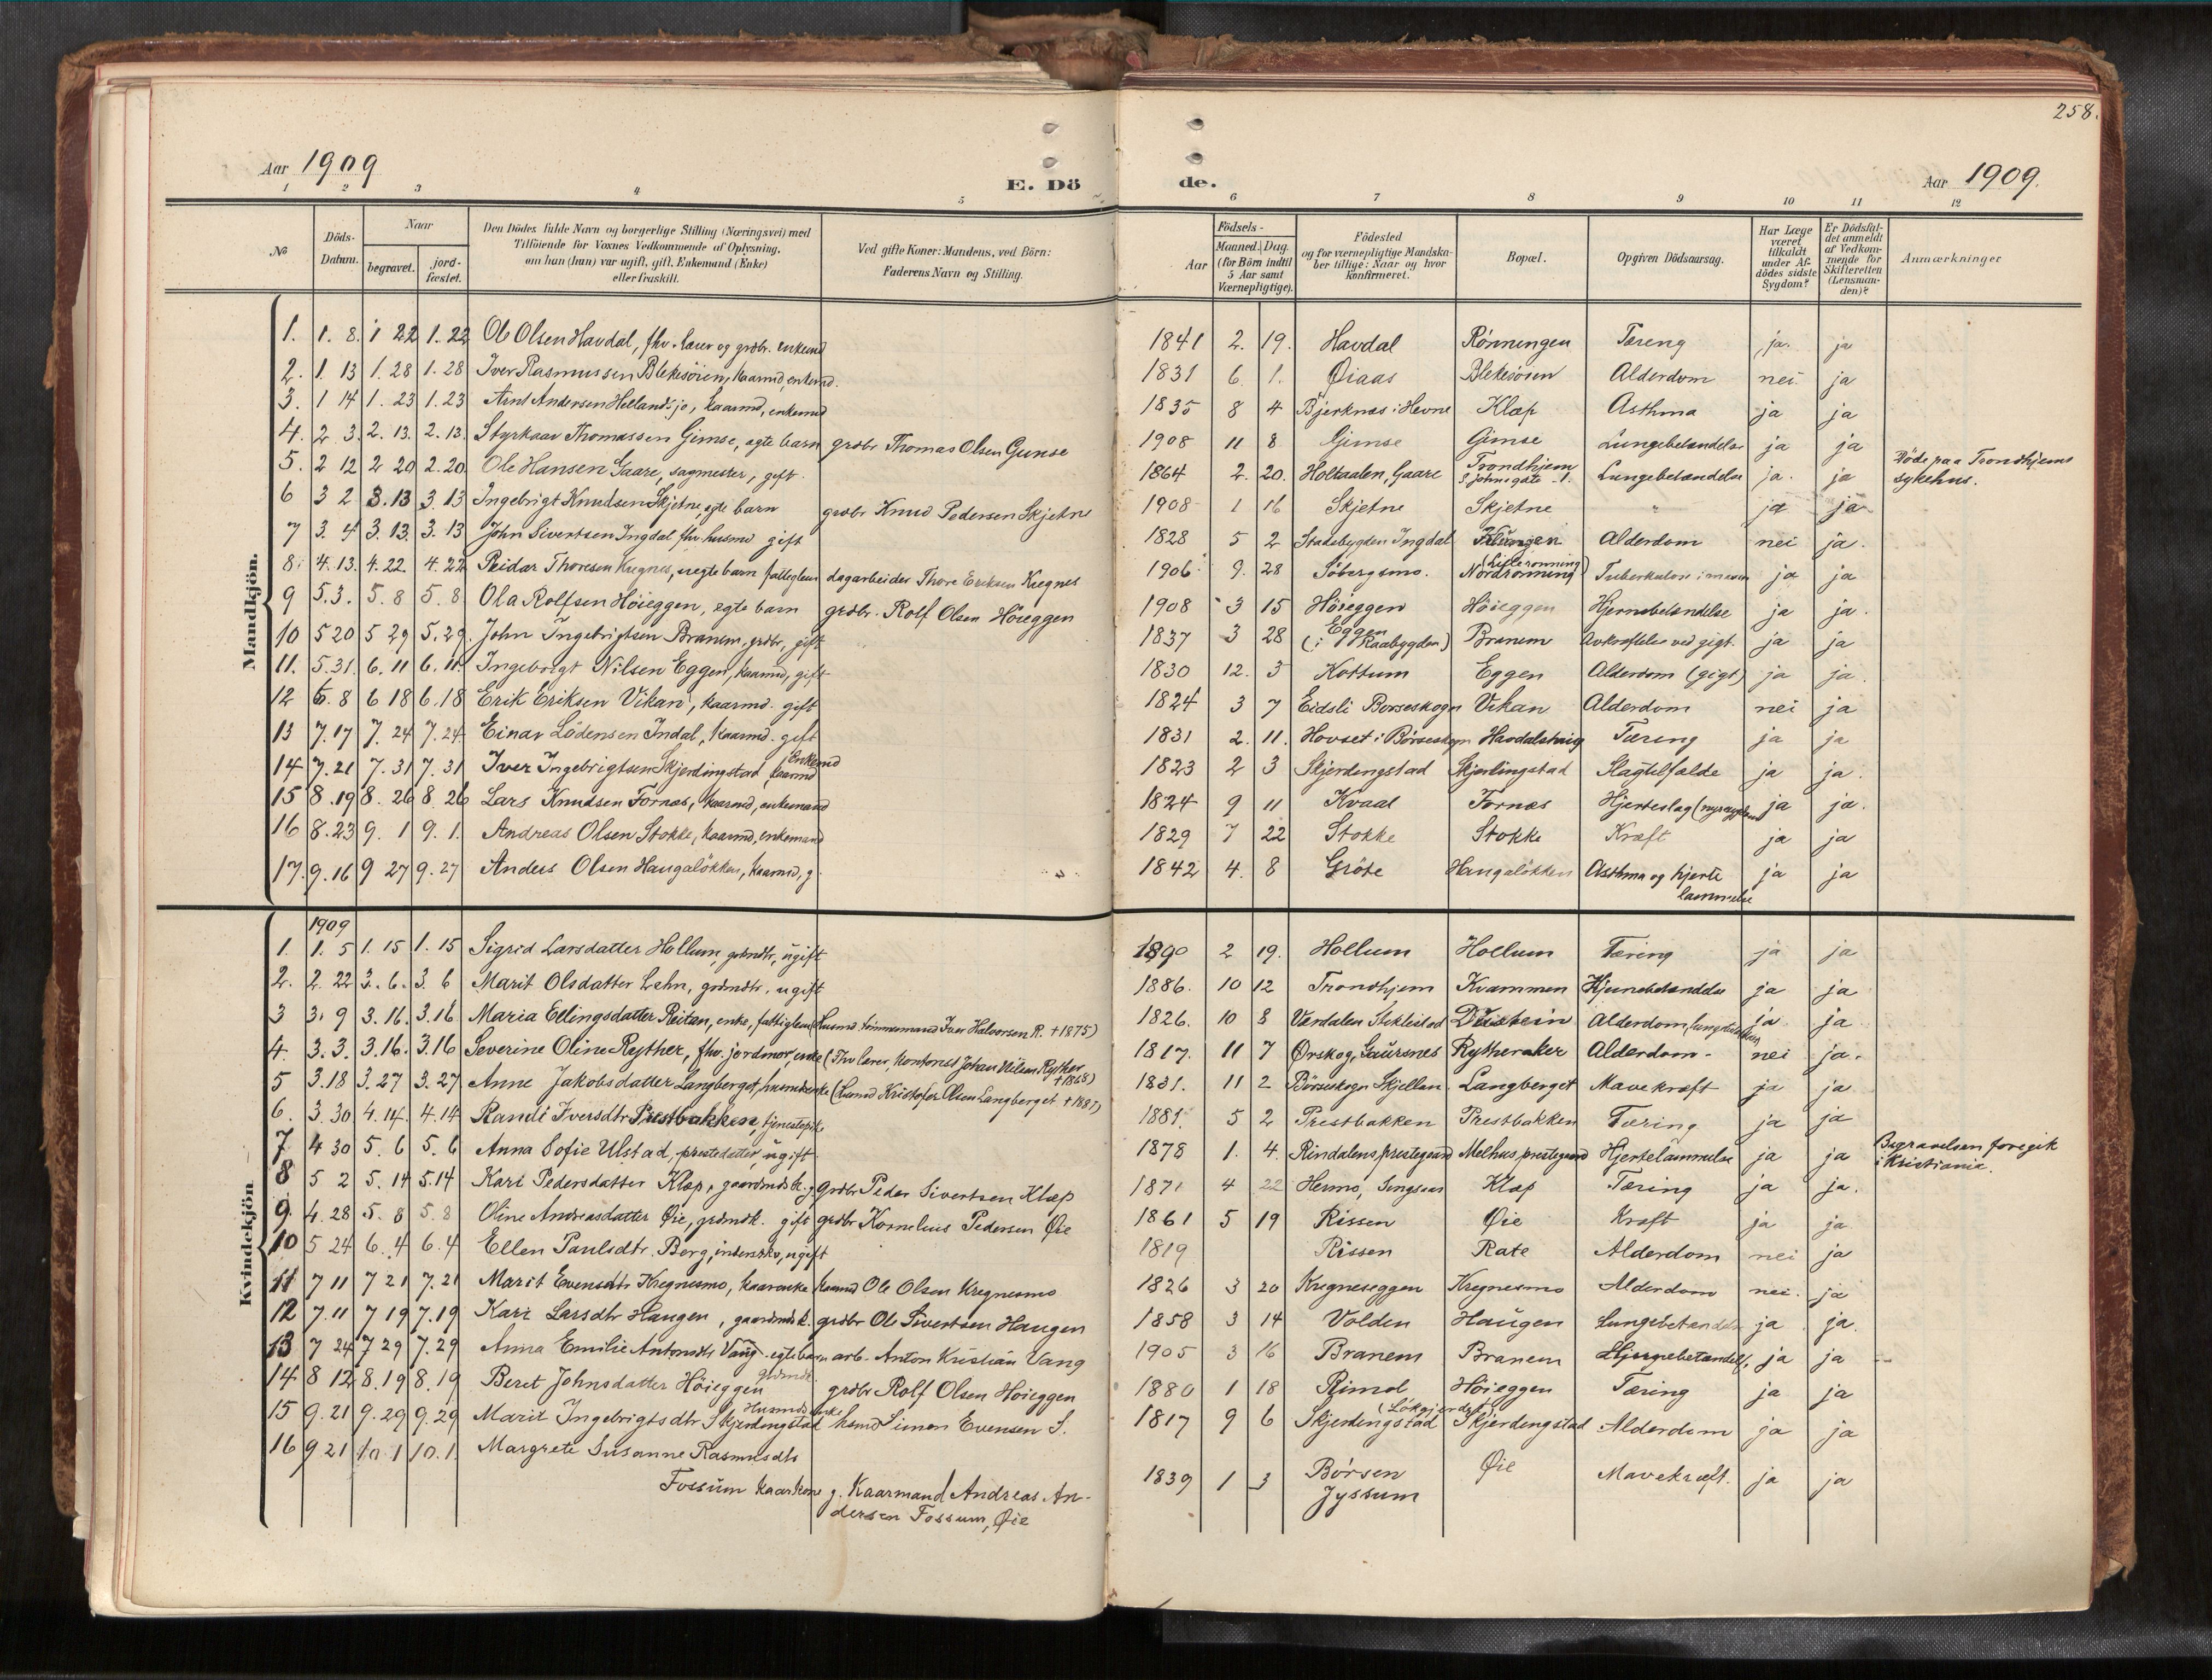 258.
Aar 1909
E. Dö
de.
Aar 1909.
1 2 3 4 5 6 7 8 9 10 11 12
No
Döds-Datum.
Naar
begravet.
jord-fæstet.
Den Dödes fulde Navn og borgerlige Stilling (Næringsvei) med
Tilföiende for Voxnes Vedkommende af Oplysning,
om han (hun) var ugift, gift, Enkemand (Enke)
eller fraskilt.
Ved gifte Koner: Mandens, ved Börn:
Faderens Navn og Stilling.
Födsels-
Aar
Maaned. Dag.
(for Börn indtil
5 Aar samt
Værnepligtige).
Födested
og for værnepligtige Mandska-
ber tillige: Naar og hvor
konfirmeret.
Bopæl.
Opgiven Dödsaarsag.
Har Læge
været
tilkaldt
under Af-
dödes sidste
Sygdom?
Er Dödsfal-
det anmeldt
af Vedkom-
mende for
Skifteretten
(Lensman-
den)?
Anmærkninger
Mandkjön.
1. 1. 8. 1 22 1. 22 Ole Olsen Havdal, fhv. lærer og grdbr. enkemd 1841 2. 19. Havdal Rønningen Tæreng ja. ja
2. 1. 13 1. 28 1. 28 Iver Rasmussen Blekesöien, kaarmd, enkemd. 1831 6. 1. Øiaas Blekesöien Alderdom nei ja
3. 1 14 1. 23 1. 23 Arnt Andersen Hellandsjø, kaarmd, enkemd 1835 8 4 Bjerknæs i Hevne Klæp Asthma ja ja
4. 2 3. 2. 13. 2. 13. Styrkaar Thomassen Gimse, ægte barn grdbr Thomas Olsen Gimse 1908 11 8 Gimse Gimse Lungebetændelse ja ja
5. 2 12 2 20 2. 20. Ole Hansen Gaare, sagmester, gift. 1864 2. 20. Holtaalen, Gaare Trondhjem Lungebetændelse ja. ja Döde paa Trondhjems sykehus.
6 3 2 3. 13 3. 13 Ingebrigt Knudsen Skjetne, egte barn grdbr Knud Pedersen Skjetne 1908 1 16 Skjetne Skjetne " ja ja
7 3. 4 3. 13. 3. 13 John Sivertsen Ingdal fhv. husmd gift 1828 5 2 Stadsbygden Ingdal Alderdom nei ja.
8. 4. 13. 4. 22. 4. 22 Reidar Thoresen Kregnes, uegte barn dagarbeider Thore Eriksen Kregnes 1906. 9. 28 Söbergsmo. Nordrønning (Lillerønning) Tuberkulose i maven ja ja
9 5. 3. 5. 8 5. 8 Ola Rolfsen Höieggen, egte barn grdbr. Rolf Olsen Höieggen 1908 3 15 Höieggen Höieggen Hjernebetændelse ja ja.
10 5 20 5 29 5. 29. John Ingebrigtsen Branem, grdbr, gift 1837 3 28 Eggen (i Raabygden) Branem Avkræftelse ved gigt. ja ja
11. 5. 31. 6. 11 6. 11. Ingebrigt Nilsen Eggen, kaarmd, gift 1830 12. 3 Kottum Eggen Alderdom (gigt) ja ja.
12 6. 8 6 18 6. 18 Erik Eriksen Vikan, kaarmd. gift 1824 3 7 Eidsli Borseskogn Vikan Alderdom nei ja
13 7. 17 7. 24 7. 24. Einar Lödensen Indal, kaarmd. gift 1831 2. 11. Hovset i Börseskogn Havdalshaug Tæring ja ja
14 7. 21 7. 31 7. 31 Iver Ingebrigtsen Skjerdingstad, kaarmd Enkemd 1823 2 3 Skjerdingstad Skjerdingstad Slagtilfælde ja ja.
15 8. 19 8. 26 8. 26 Lars Knudsen Fornæs, kaarmd, enkemand 1824 9 11 Kvaal Fornæs Hjerteslag ja ja.
16 8. 23 9. 1 9. 1. Andreas Olsen Stokke, kaarmd, enkemand 1829 7 22 Stokke Stokke Kræft ja ja
17. 9. 16 9 27 9. 27 Anders Olsen Haugalökken, kaarmd, g 1842 4. 8 Gröte Haugalökken Asthma og hjerte lammelse ja ja
Kvindekjön
1909
1. 1. 5 1. 15 1. 15 Sigrid Larsdatter Hollum, grdmdtr, ugift 1890 2 19. Hollum Hollum Tæring ja ja
2. 2. 22 3. 6. 3. 6 Marit Olsdatter Lehn, grdmdtr. ugift 1886. 10 12 Trondhjem Kvammen Hjernebetændelse ja ja
3 3. 9 3. 16. 3. 16 Maria Ellingsdatter Reitan, enke, fattiglem (Husmd. tømmermand Iver Halvorsen R. +1875) 1826. 10 8 Værdalen Stiklestad Alderdom ja ja
4. 3. 3. 3. 16. 3. 16 Severine Oline Ryther, fhv. jordmor, enke (Fhv lærer, kontorist Johan Nilsen Ryther +1868) 1817. 11 7 Ørskog, Gaursnes Rytheraker Alderdom. nei ja.
5 3. 18 3. 27 3. 27 Anne Jakobsdatter Langberget, husmdsenke (Husmd Kristofer Olsen Langberget +1887) 1831. 11 2 Börseskogn Skjellan. Langberget Mavekræft ja ja
6. 3. 30 4. 14. 4. 14 Randi Iversdtr Prestbakken, tjenestepike 1881. 5 2 Prestbakken Prestbakken Tæring ja ja
7 4 30 5. 6 5. 6 Anna Sofie Ulstad, prestedatter, ugift. 1878 1. 4. Rindalens prestegaard Melhus prestegaard Hjertelammelse ja ja Begravelsen foregik i Kristiania.
8 5 2 5. 14 5. 14 Kari Pedersdatter Klæp, gaardmdsk. g grdbr Peder Sivertsen Klæp 1871 4 22 Hermo, Singsaas Klæp Tæring ja ja.
9. 4. 28 5. 8 5. 8 Oline Andreasdatter Øie, grdmdk. gift grdbr Kornelius Pedersen Øie 1861 5 19 Rissen Øie Kræft ja ja
10 5 24 6. 4 6. 4 Ellen Paulsdtr. Berg, inderstkv, ugift 1819 Rissen Rate Alderdom nei ja
11 7 11 7 21 7. 21 Marit Evensdtr Kregnesmo, kaarenke kaarmd Ole Olsen Kregnesmo 1826 3 20 Kregneseggen Kregnesmo Alderdom nei. ja
12 7. 11 7 19 7. 19 Kari Larsdtr Haugen, gaardmdsk. grdbr Ole Sivertsen Haugen 1858 3 14 Volden Haugen Lungebetændelse ja ja.
13 7 24 7 29 7. 29 Anna Emilie Antonsdtr Vang. egtebarn arb. Anton Kristian Vang 1905 3 16 Branem Branem Hjernebetændelse, ja ja
14 8 12 8. 19 8. 19 Beret Johnsdatter Höieggen grdmdk. grdbr Rolf Olsen Höieggen 1880 1 18 Rimol Höieggen Tæring ja ja
15 9. 21 9. 29 9. 29 Marit Ingebrigtsdtr Skjerdingstad Husmdsenke husmd Simen Evensen S. 1817 9 6 Skjerdingstad (Lökgjerdet) Skjerdengstad Alderdom ja ja
16 9 21 10 1 10. 1. Margrete Susanne Rasmusdtr
Fossum kaarkone g. Kaarmand Andreas An-
dersen Fossum, Øie 1839 1 3 Børsen Jyssum Øie Mavekræft. ja ja